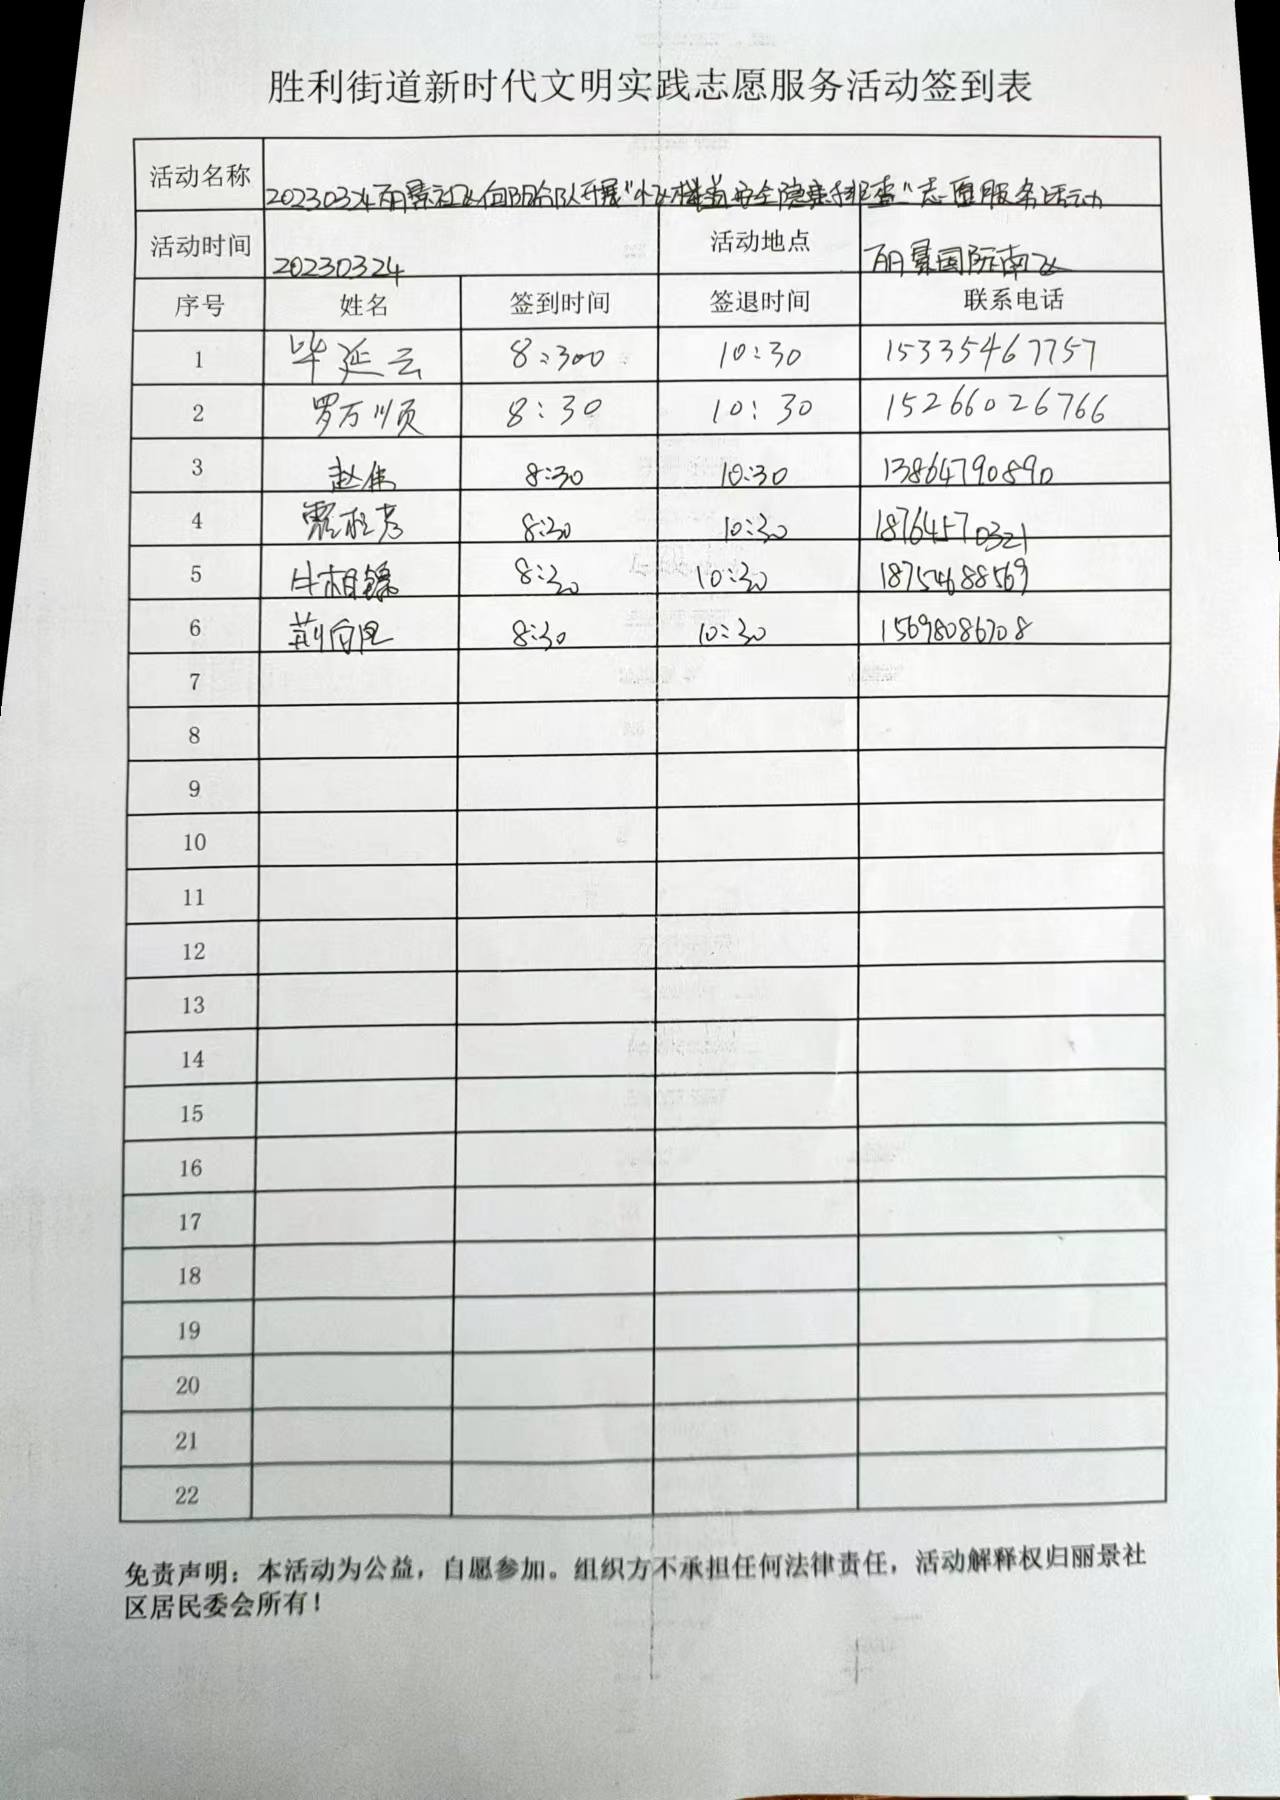 胜利街道新时代文明实践志愿服务活动签到表
活动名称 20230324丽景社区向阳合队开展“小区楼道安全隐患排查”志愿服务活动
活动时间 20230324 活动地点 丽景国际南区
序号 姓名 签到时间 签退时间 联系电话
1 毕延云 8:300 10:30 15335467757
2 罗万顺 8:30 10:30 15266026766
3 赵伟 8:30 10:30 13864790890
4 8:30 10:30 18764570321
5 牛相镍 8:30 10:30 18754688569
6 荆向 8:30 10:30 15698086708
7
8
9
10
11
12
13
14
15
16
17
18
19
20
21
22
免责声明：本活动为公益，自愿参加。组织方不承担任何法律责任，活动解释权归丽景社
区居民委会所有！